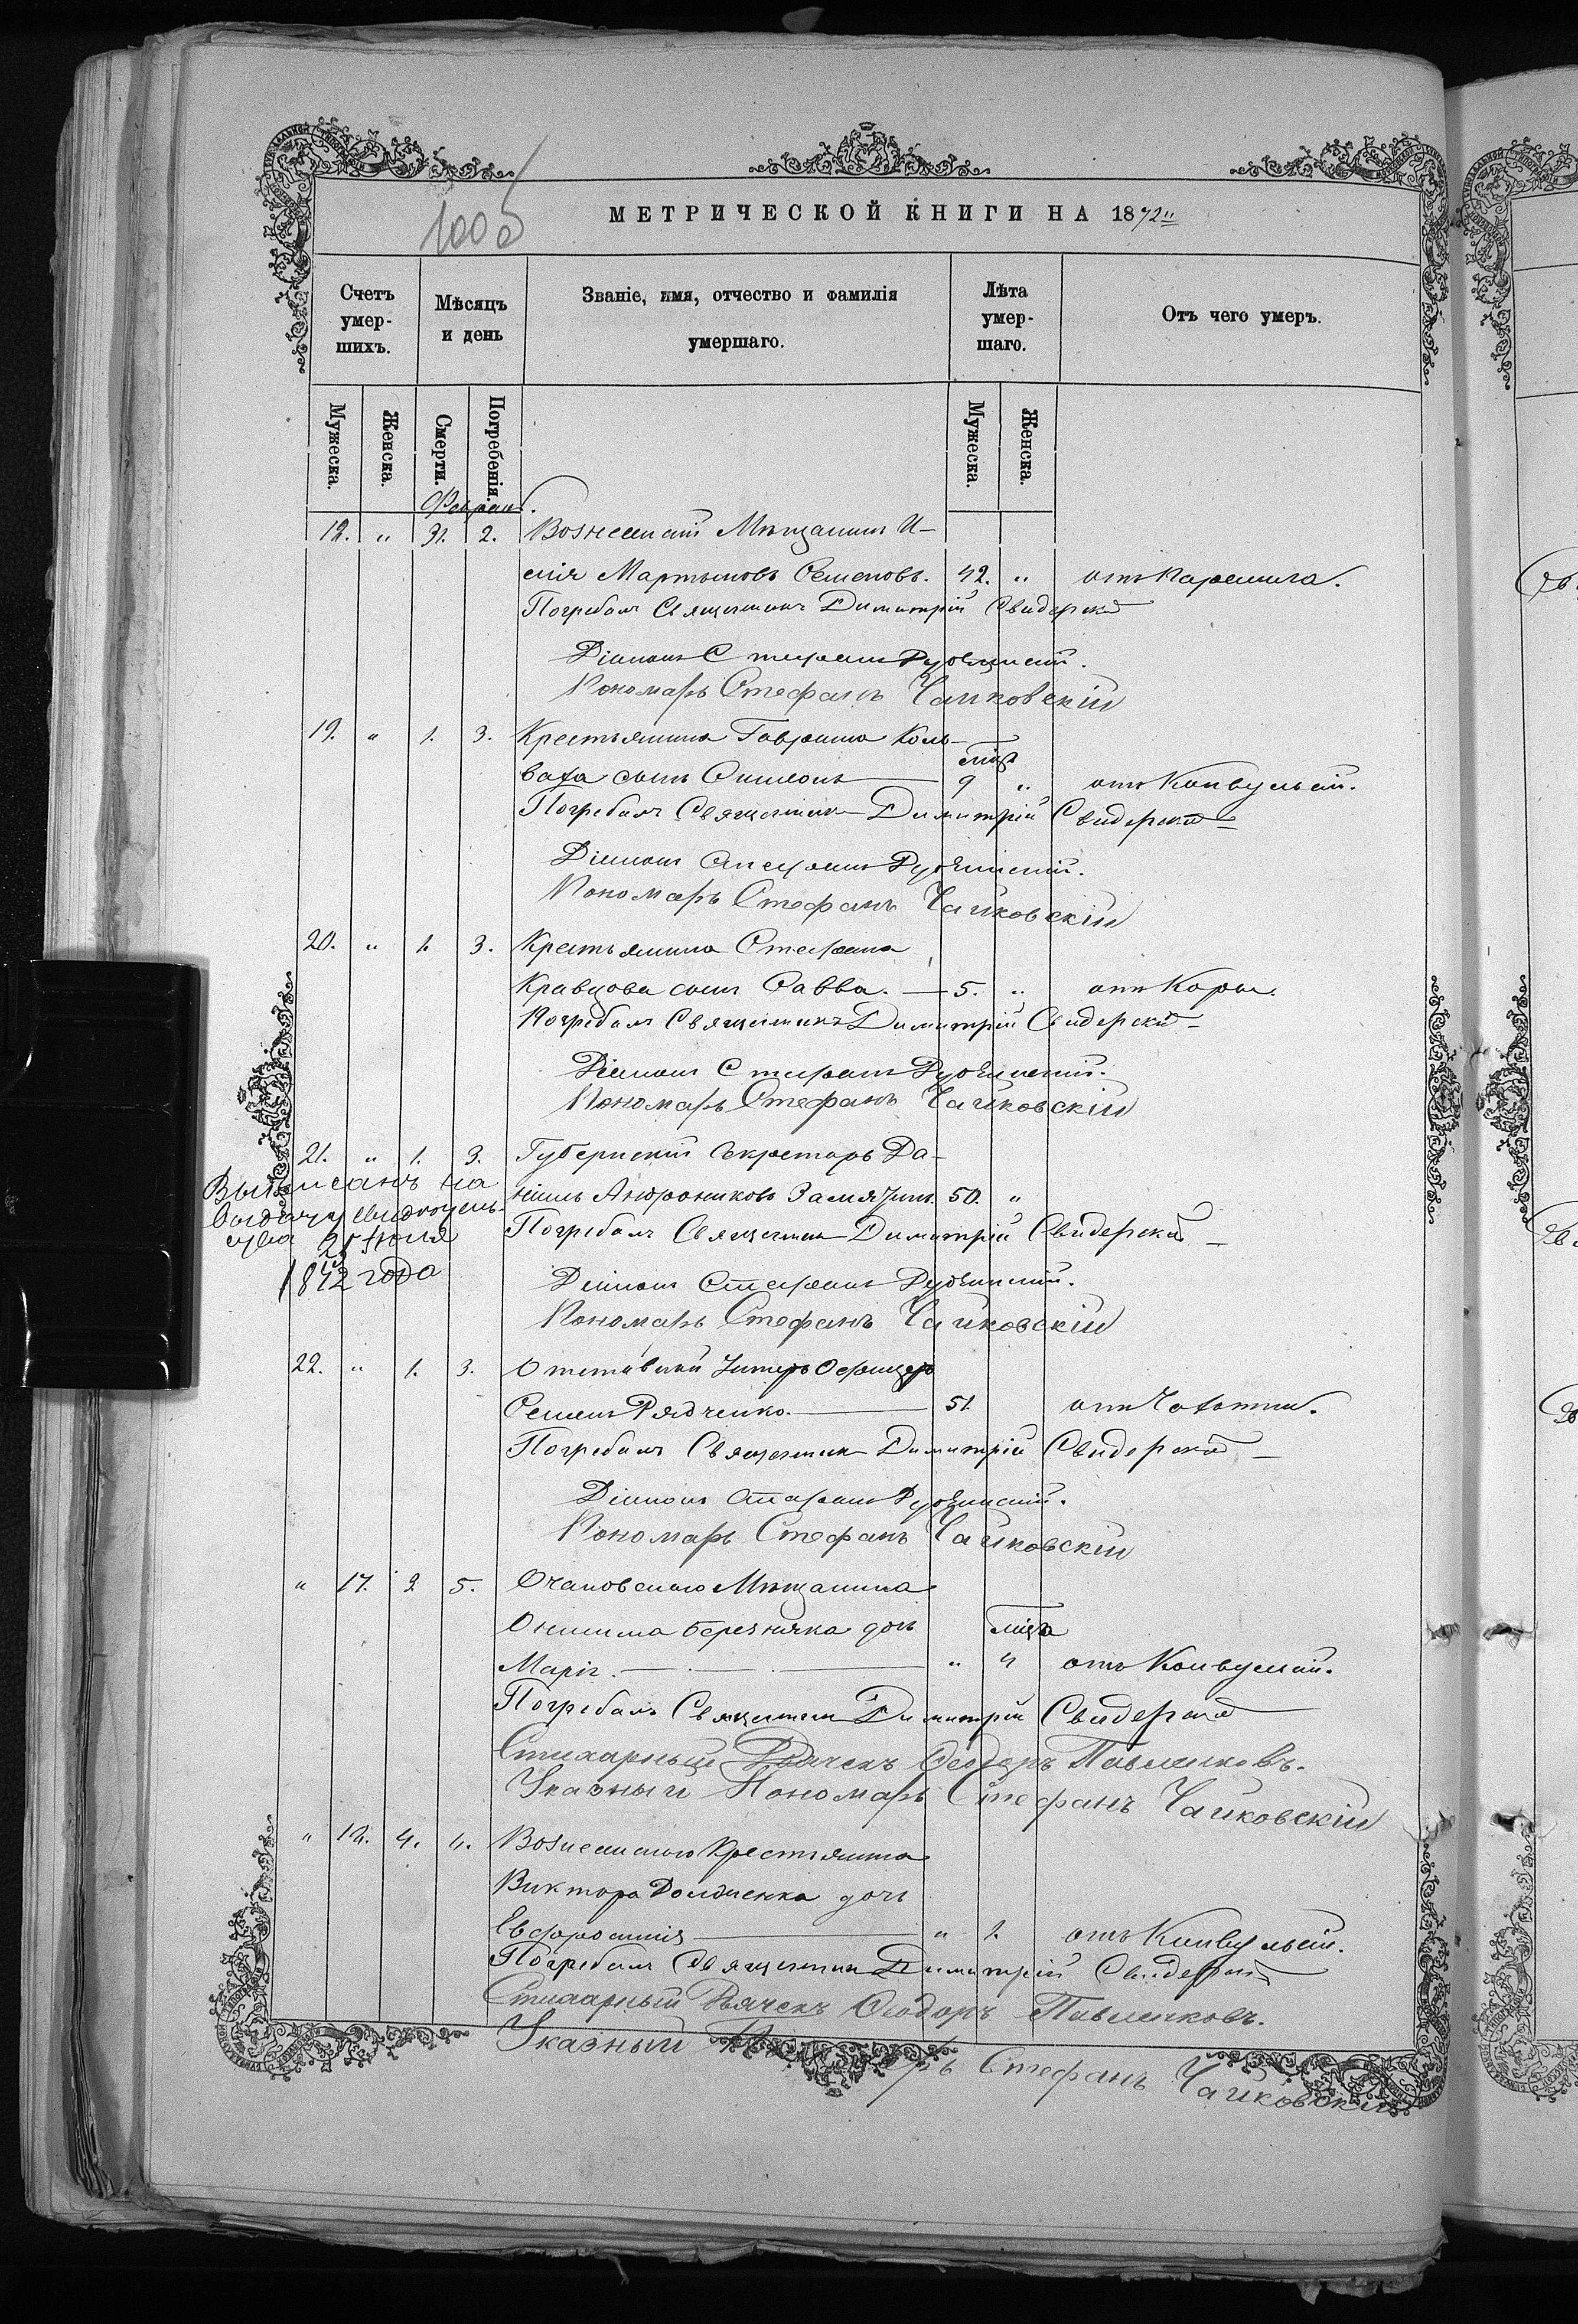 1000
МЕТРИЧЕСКОЙ КНИГИ НА 1872
Счетъ умер-шихъ.
Мѣсяцъ и день
Званіе, имя, отчество и фамилія умершаго.
Лѣта умер-шаго.
Отъ чего умеръ.
Мужеска.
Женска.
Смерти.
Погребенія.
Мужеска.
Женска.
Феврал.
„ 31. 2. Вознесенскій Мѣщанинъ И-
Мартыновъ Семеновъ. 42. „ отъ
Погребалъ Священникъ Димитрій Свидерскій
Діаконъ Стефанъ
Пономарь Стефанъ Чайковскій
19. „ 1. 3. Крестьянина Гавріила Коль-
мѣся
сынъ Симеонъ 9 „ отъ Конвульсій.
Погребалъ Священникъ Димитрій Свидерскій
Діаконъ Стефанъ
Пономарь Стефанъ Чайковскій
20. „ 1. 3. Крестьянина Стефана
Кравцова сынъ Савва. 5. „ отъ Кори.
Погребалъ Священникъ Димитрій Свидерскій
Діаконъ Стефанъ
Пономарь Стефанъ Чайковскій
21. „ 1. 3. Губернскій Секретарь Да-
Выписанъ на
ніилъ Андрониковъ 50. „
выдачу свидѣтель-
Погребалъ Священникъ Димитрій Свидерскій
ства 21 Іюня
1872 года
Діаконъ Стефанъ
Пономарь Стефанъ Чайковскій
22. „ 1. 3. Отставный Унтеръ Офицеръ
Семенъ Рядченко. 51. отъ Чахотки.
Погребалъ Священникъ Димитрій Свидерскій
Діаконъ Стефанъ
Пономарь Стефанъ Чайковскій
„ 17. 2 5. Очаковскаго Мѣщанина
Онисима Березняка дочь
мѣся
Марія. „ 4 отъ Конвульсій.
Погребалъ Священникъ Димитрій Свидерскій
Стихарный Дьячекъ Ѳеодоръ Павленковъ.
Указный Пономарь Стефанъ Чайковскій
„ 4. 4. Вознесенскаго Крестьянина
Виктора дочь
Евфросинія „ 1. отъ Конвульсій.
Погребалъ Священникъ Димитрій Свидерскій
Стихарный Дьячекъ Ѳеодоръ Павленковъ.
Указный Пономарь Стефанъ Чайковскій